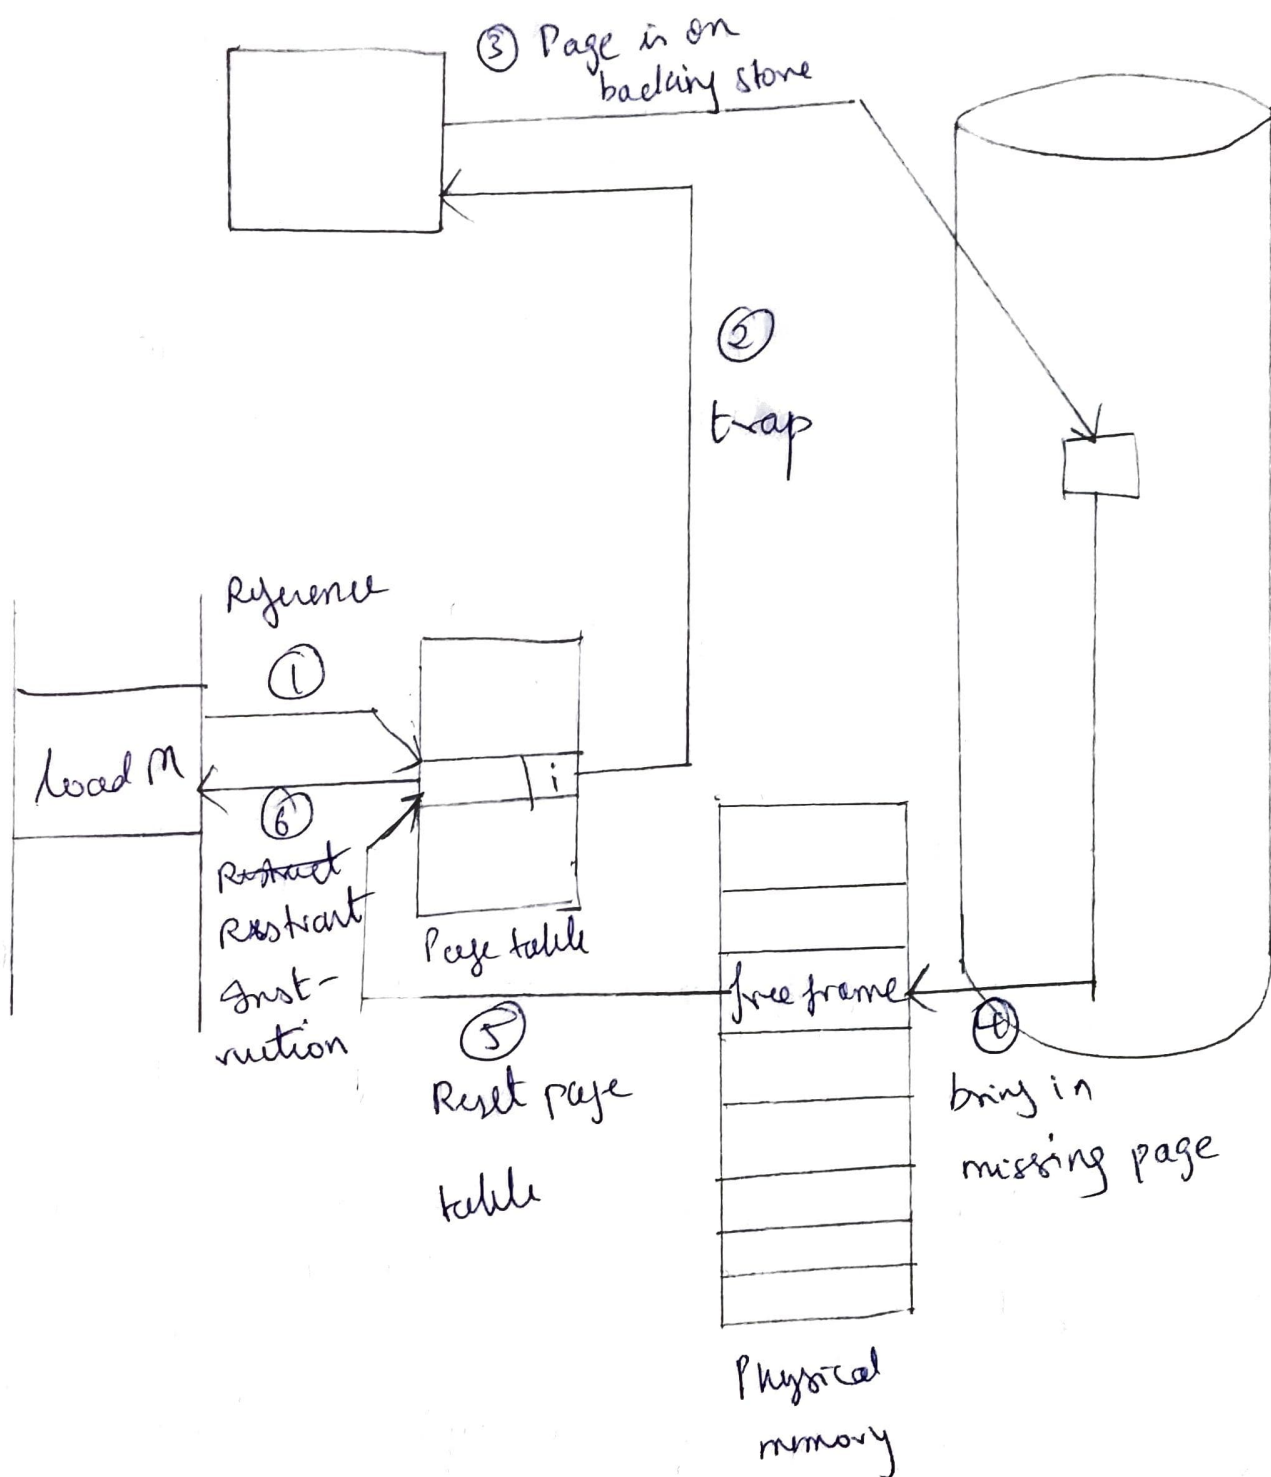 ③ Page is on
backing store
②
trap
Reference
①
load M
i
⑥
Restract
Restrart
Inst-
ruction
Page table
free frame
⑤
Reset page
table
④
bring in
missing page
Physical
memory